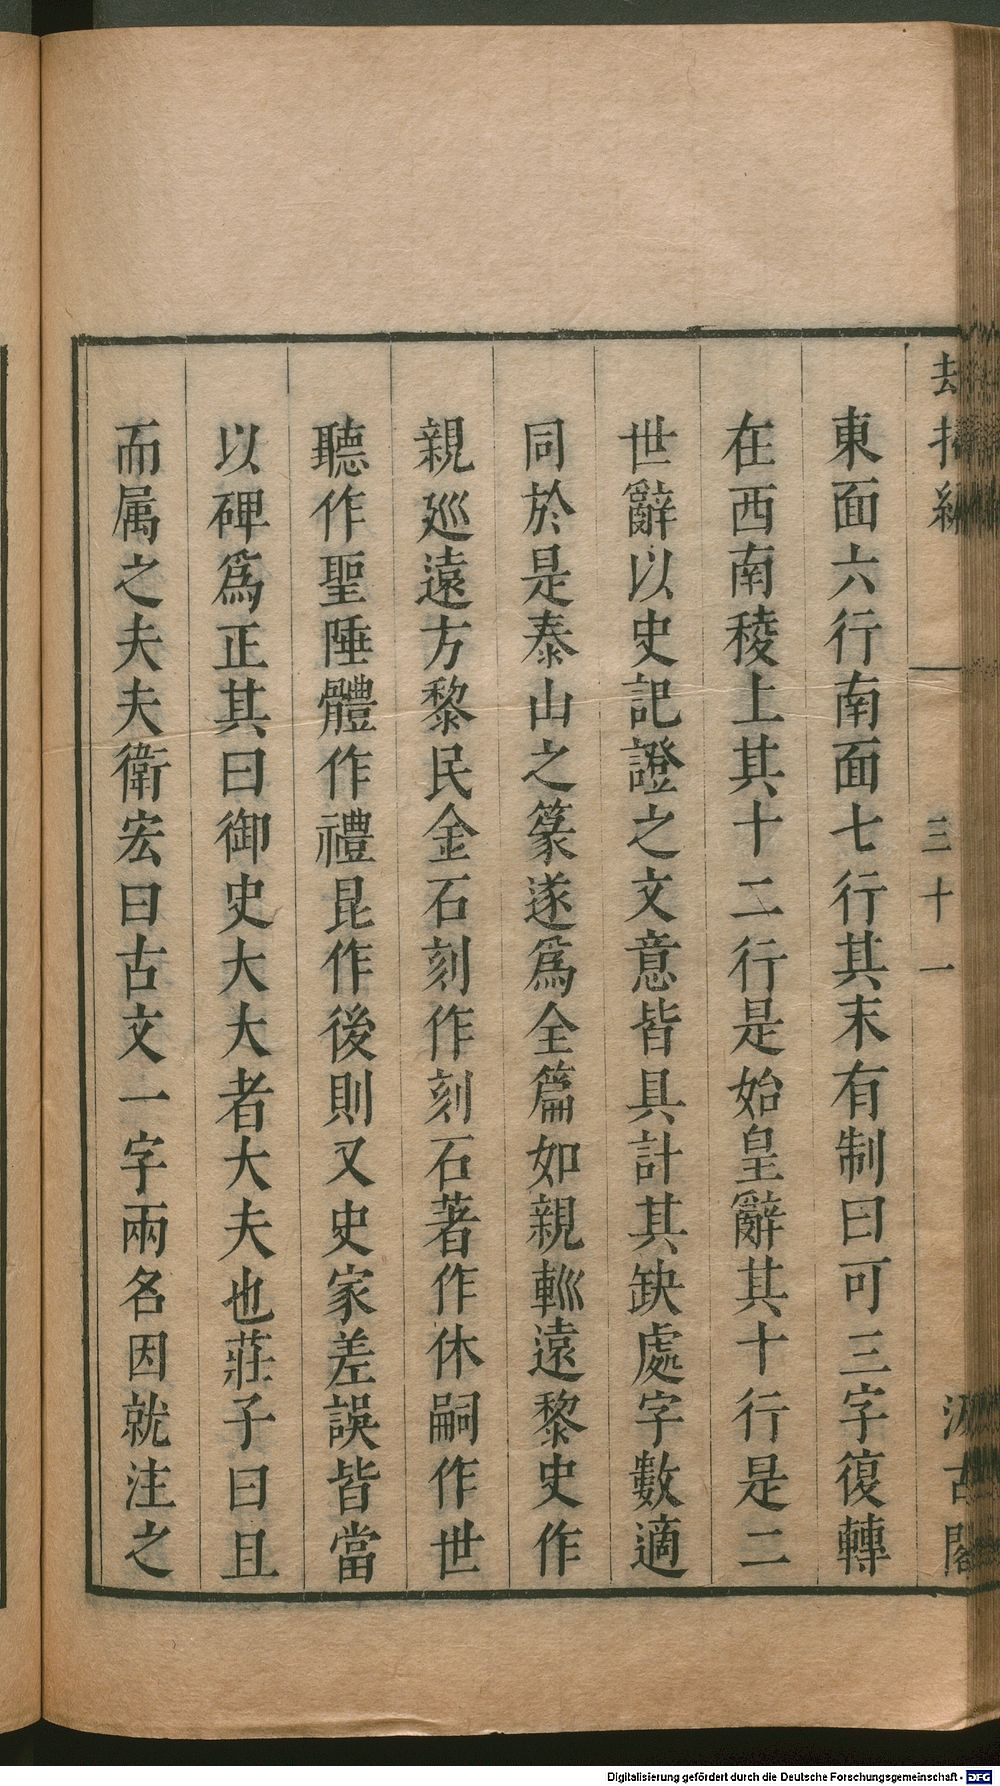 東面六行南面七行其末有制曰可三字復轉
在西南稜上其十二行是始皇辭其十行是二
世辭以史記證之文意皆具計其缺處字數適
同於是泰山之篆遂爲全篇如親輙遠黎史作
親廵遠方黎民金石刻作刻石著作休嗣作世
聽作聖陲體作禮昆作後則又史家差誤皆當
以碑爲正其曰御史大大者大夫也莊子曰且
而属之夫夫衛宏曰古文一字兩名因就注之
三十一
汲古閣
Digitalisierung gefördert durch die Deutsche Forschungsgemeinschaft - DFG